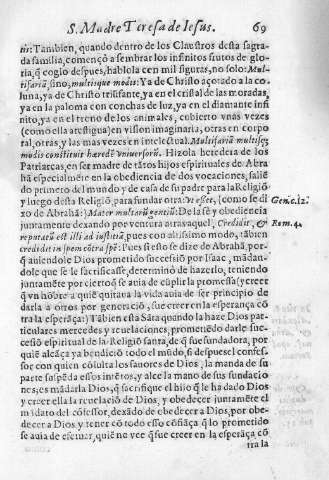 S. Madre Teresa de Iesus. 69
tir: Tambien, quando dentro de los Claustros desta sagra-
da familia, començò a sembrar los infinitos frutos de glo-
ria, q̃ cogio despues, hablola cen mil figuras, no solo: Mul-
tifariã, sino, multisque modis: Ya de Christo açotado a la co-
luna, ya de Christo triũfante, ya en el cristal de las moradas,
ya en la paloma con conchas de luz, ya en el diamante infi-
nito, ya en el trono de los animales, cubierto vnas vezes
(como ella atestigua) en vision imaginaria, otras en corpo
ral, otras, y las mas vezes en intelectual. Multifariã multisq;
modis constituit haredẽ vniuersorũ. Hizola heredera de los
Patriarcas, en ser madre de tãtos hijos espirituales de Abra
hã especialmẽte en la obediencia de dos vocaciones, salié
do primero del mundo y de casa de su padre para la Religiõ
y luego desta Religiõ, para fundar otra: Vt esset, (como se di
xo de Abrahã: Mater multarũ gentiũ: De la fè y obediencia Gene.12.
juntamente dexando por ventura atras aquel, Credidit, & Rom. 4.
reputatũ est illi ad iustitiã, pues con altissimo modo, tãbien
credidit in spem cõtra spẽ: Pues si esto se dize de Abrahã, por-
q̃ auiendole Dios prometido succession por Isaac, mãdan-
dole que se le sacrificasse, determinò de hazerlo, teniendo
juntamẽte por cierto q̃ se auia de cũplir la promessa (y creer
q̃ vn hõbre a quiẽ quitaua la vida auia de ser principio de
darla a otros por generaciõ, fue creer en la esperança cõ
tra la esperãça:) Tãbien esta Sãta quando la haze Dios par-
ticulares mercedes y reuelaciones, prometiẽdo darle suc-
cesiõ espiritual de la Religiõ santa, de q̃ fue fundadora, por
quiẽ alcãça ya bendiciõ todo el mũdo, si despues el confes-
sor con quien cõsulta los fauores de Dios, la manda de su
parte suspẽda essos intẽtos, y alce la mano de sus fundacio
nes, es mãdarla Dios, q̃ sacrifique el hijo q̃ le ha dado Dios
y creer ella la reuelaciõ de Dios, y obedecer juntamẽte el
mãdato del cõfessor, dexãdo de obedecer a Dios, por obe-
decer a Dios y tener cõ todo esso cõfiãça q̃ lo prometido
se auia de efetuar, quiẽ no vee q̃ fue creer en la esperãça cõ
tra la